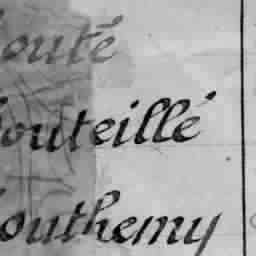 outé
outeillé
outhemy